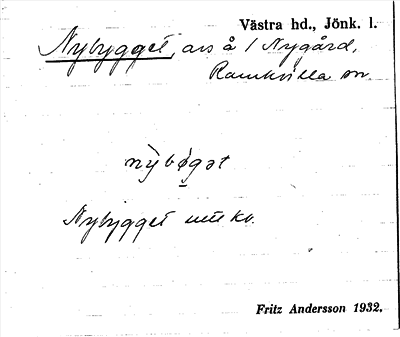 Västra hd., Jönk. l.
Nybygget, avs å 1 Nygård,
Ramkvilla sn.
nỳbø̀gət
Nybygget
Fritz Andersson 1932.